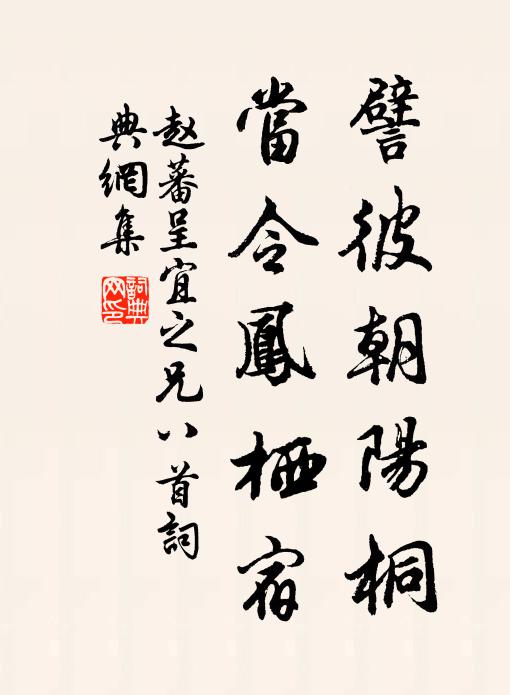 譬彼朝陽桐
當令鳳栖宿
赵蕃呈宜之兄八首詞
典網集
詞典網印